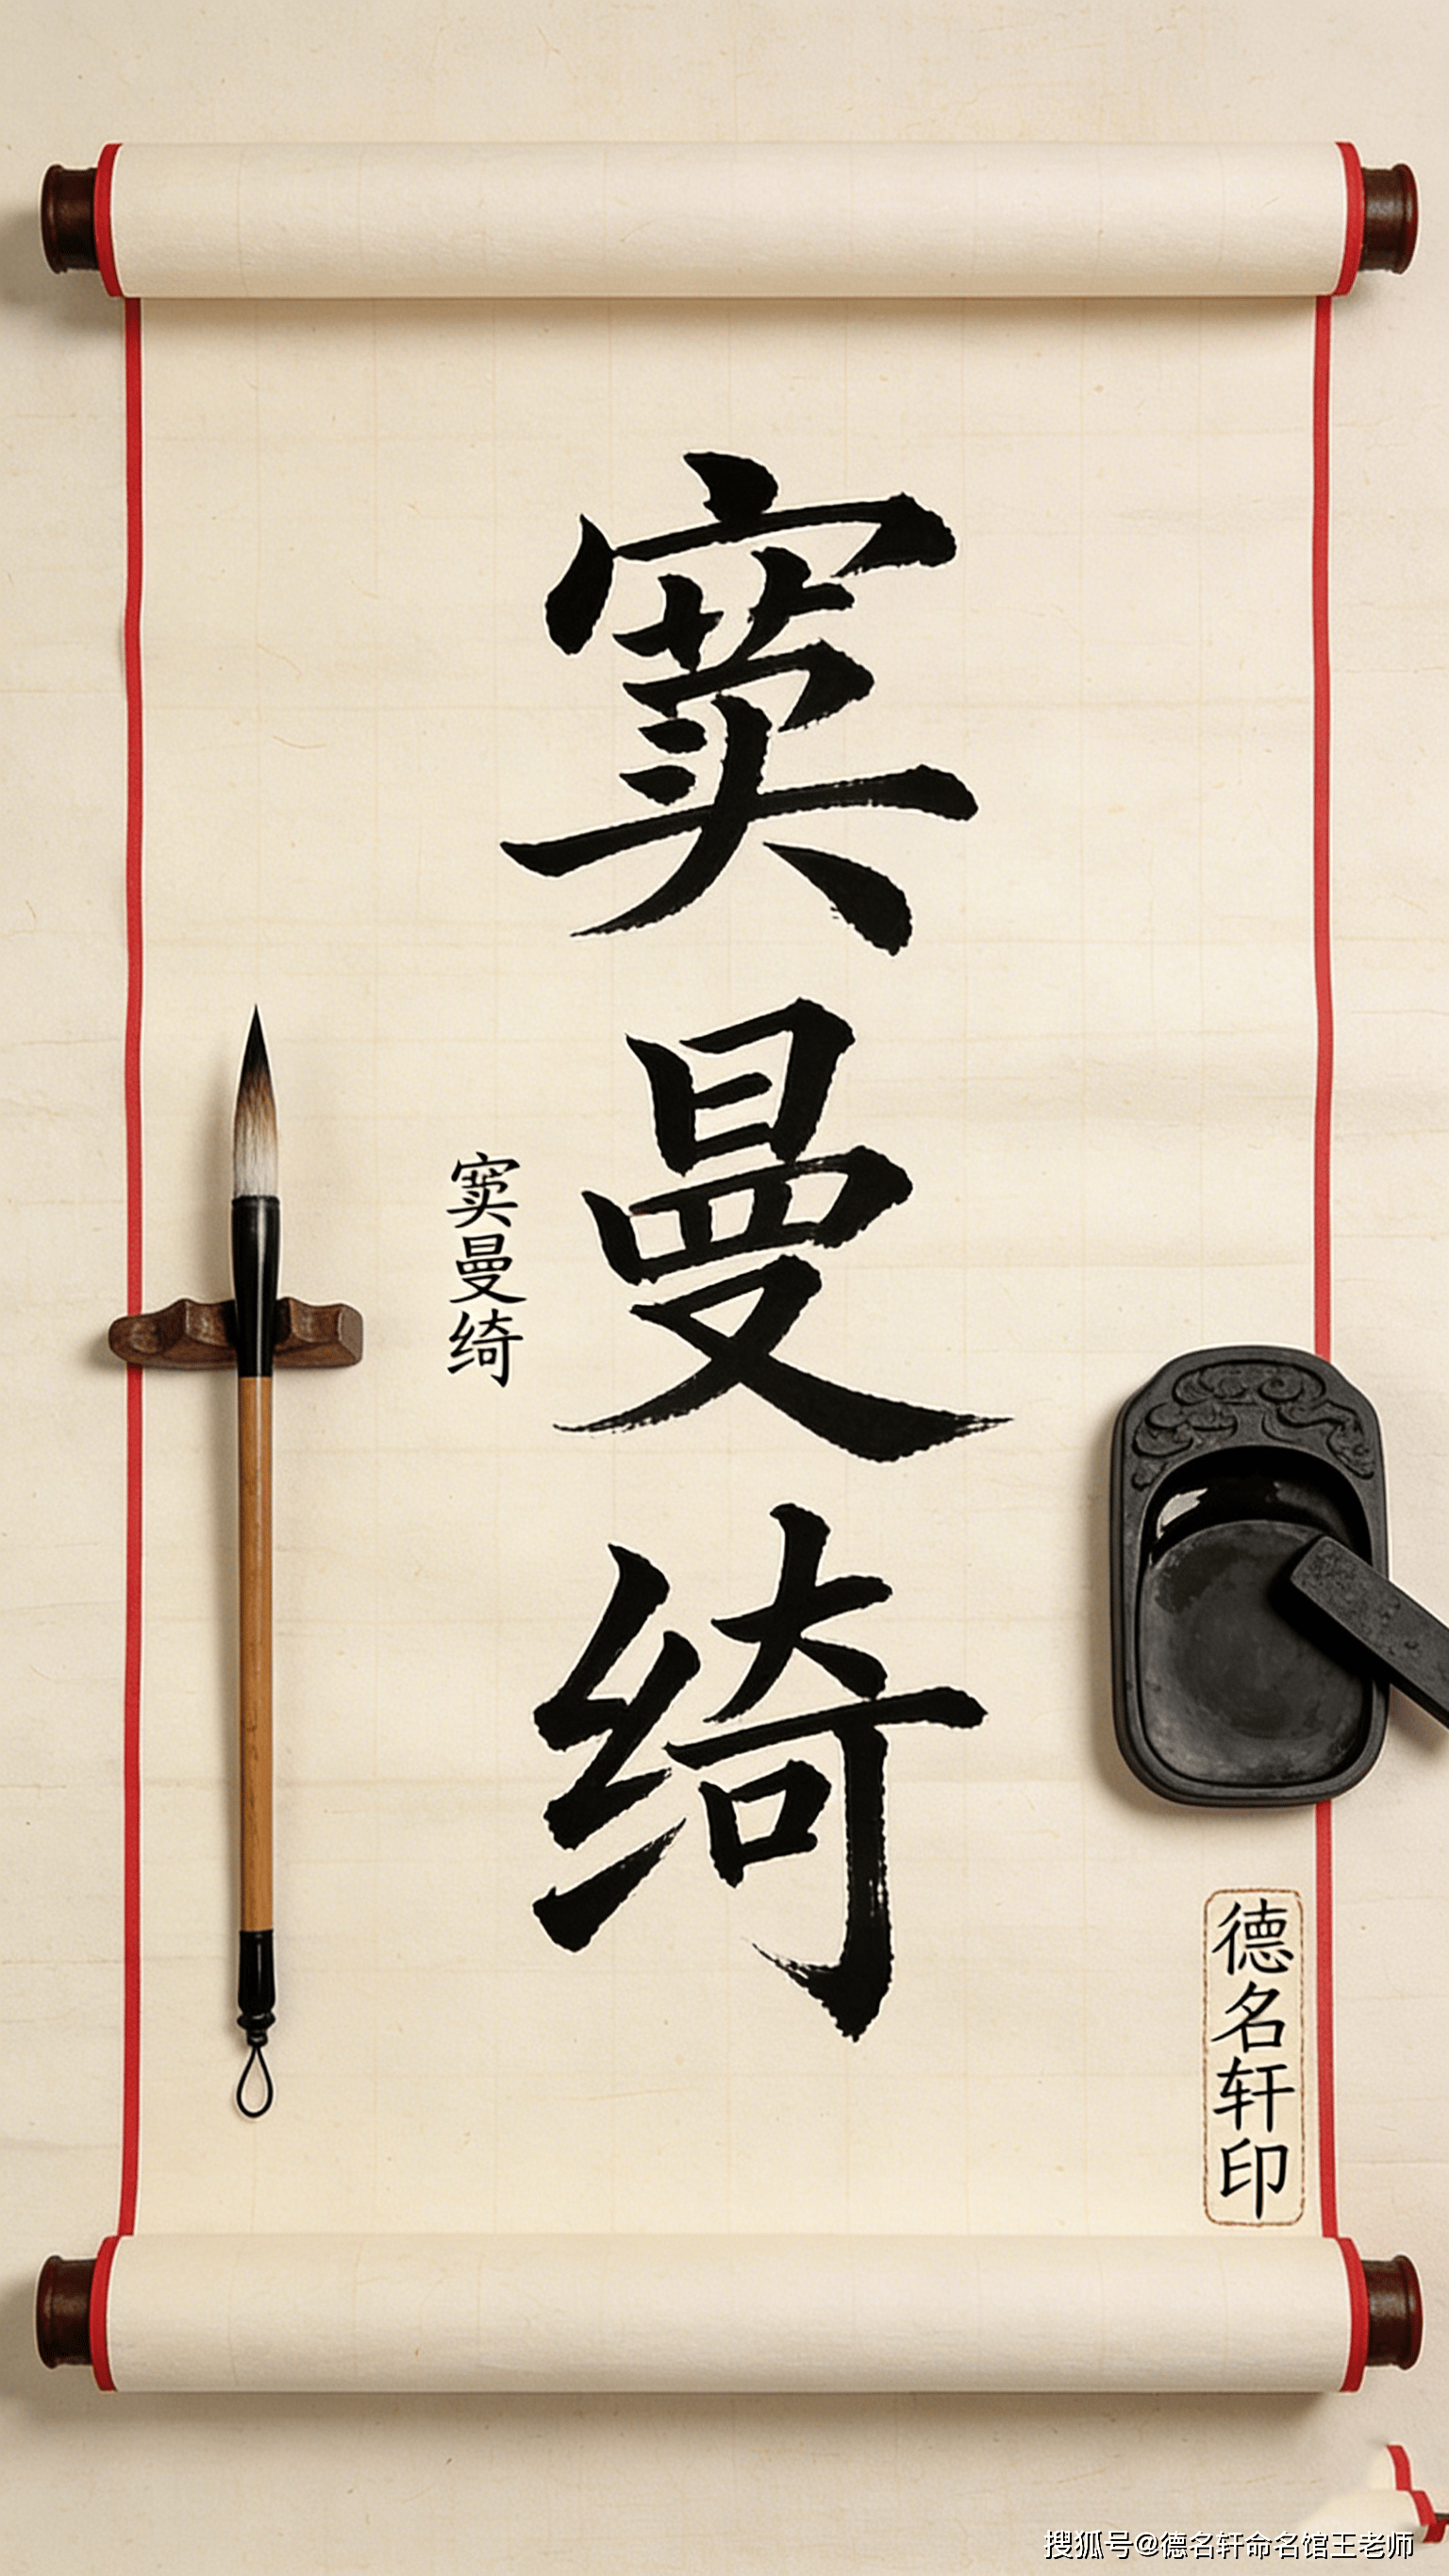 窦曼绮
窦曼绮
德名轩印
搜狐号@德名轩命名馆王老师